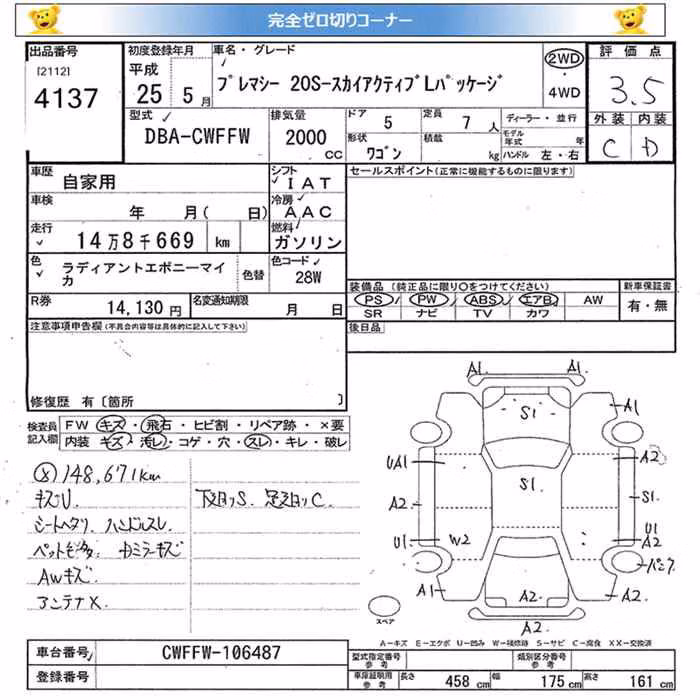 完全ゼロ切りコーナー
出品番号 初度登録年月 車名・グレード 評価点
[2112] 平成 プレマシー 20S-スカイアクティブLパッケージ 2WD
4137 25 5月 4WD 3.5
型式 排気量 ドア 5 定員 7人 ディーラー・並行 外装 内装
DBA-CWFFW 2000 CC 形状 ワゴン 積載 kg モデル年式 年 ハンドル 左・右 C D
車歴 自家用 シフト IAT セールスポイント(正常に機能するものに限ります)
車検 年 月( 日) 冷房 AAC
走行 14万8千669 km 燃料 ガソリン
色 ラディアントエボニーマイカ 色替 色コード 28W
装備品(純正品に限り○をつけてください) 新車保証書
R券 14,130円 名変通知期限 月 日 PS PW ABS エアB AW 有・無
SR ナビ TV カワ
注意事項申告欄(不具合内容等は具体的に記入して下さい) 後日品
修復歴 有〔箇所 〕
検査員記入欄 FW キズ・飛石・ヒビ割・リペア跡・×要
内装 キズ・汚レ・コゲ・穴・スレ・キレ・破レ
148,671km
キズU 下廻りS. 足廻りC.
シートヘタリ、ハンドルスレ
AWキズ
アンテナX.
A1 A1
S1
A1
UA1 A2
S1 S1
A2
U1 W2 U1 A2
パンク
A1 A2 A2
A2
スペア
A-キズ E-エクボ U-凹み W-補修跡 S-サビ C-腐食 XX-交換済
車台番号 CWFFW-106487 型式指定番号 参考 類別区分番号 参考
登録番号 車庫証明用 参考 長さ 458 cm 幅 175 cm 高さ 161 cm